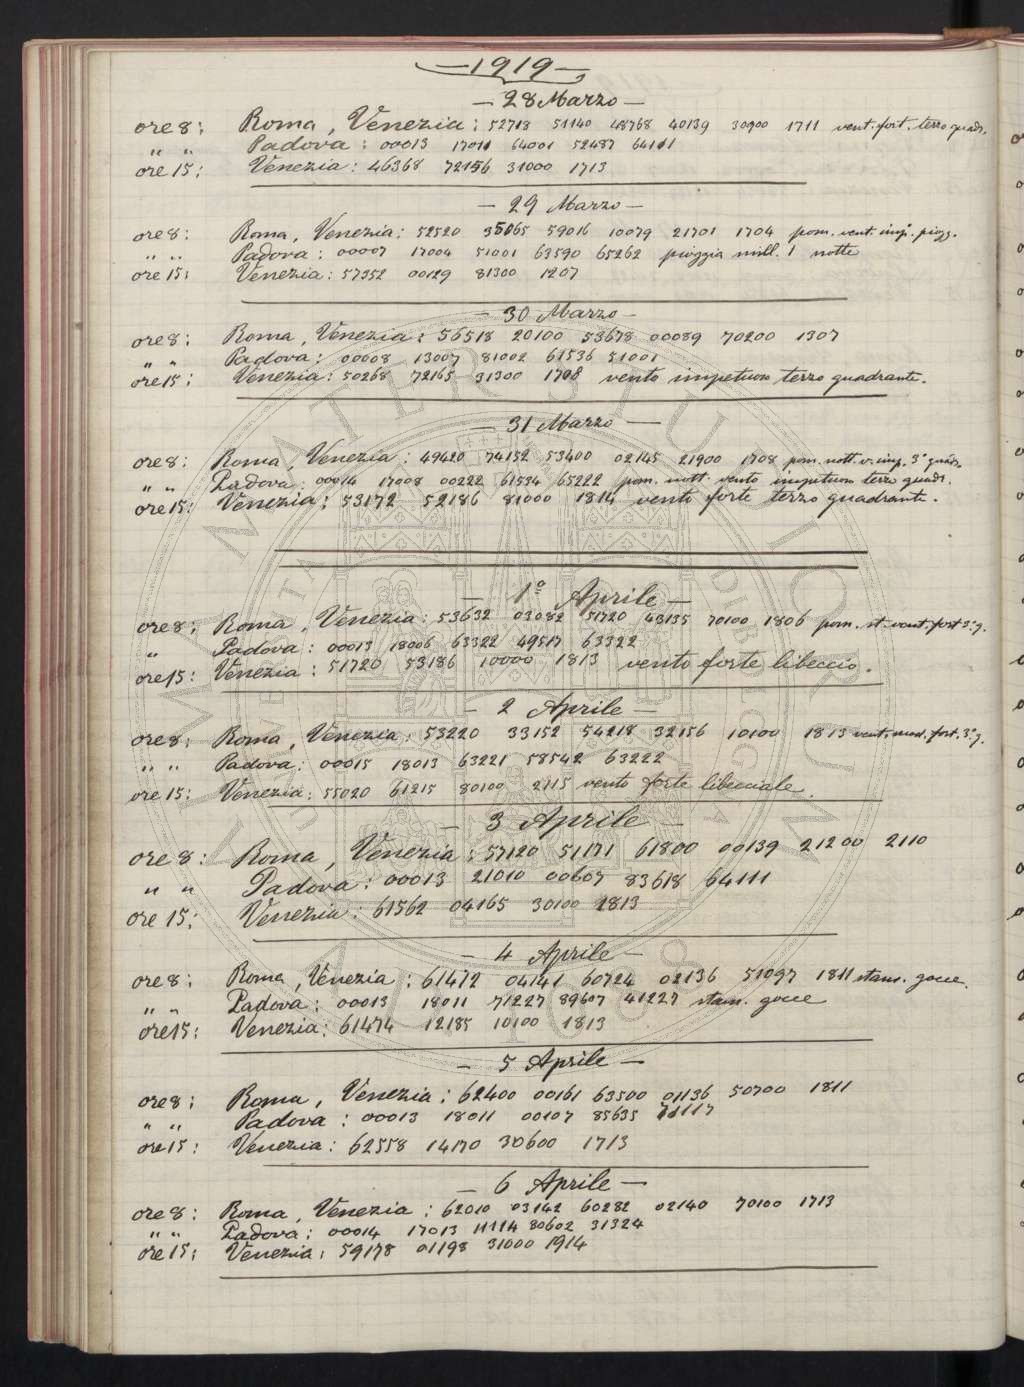 —1919—
— 28 Marzo —
ore 8: Roma, Venezia: 52718 51140 48768 40139 30900 1711 vent. fort. terzo quadr.
„ „ Padova: 00013 17011 64001 52487 64111
ore 15: Venezia: 46368 72156 31000 1713
— 29 Marzo —
ore 8: Roma, Venezia: 52520 35065 59016 10079 21701 1704 pom. vent. imp. piogg.
„ „ Padova: 00007 17004 51001 63590 65262 pioggia mill. 1 notte
ore 15: Venezia: 57352 00129 81300 1207
— 30 Marzo —
ore 8: Roma, Venezia: 56518 20100 53678 00089 70200 1307
„ „ Padova: 00008 13007 81002 61536 51001
ore 15: Venezia: 50268 72165 31300 1708 vento impetuoso terzo quadrante.
— 31 Marzo —
ore 8: Roma, Venezia: 49420 74152 53400 02145 21900 1708 pom. nott. v. imp. 3° quadr.
„ „ Padova: 00014 17008 00222 61534 65222 pom. nott. vento impetuoso terzo quadr.
ore 15: Venezia: 53172 52186 81000 1814 vento forte terzo quadrante.
— 1° Aprile —
ore 8: Roma, Venezia: 53632 03082 51720 43135 70100 1806 pom. nt. vent. fort 3° q.
„ Padova: 00013 18006 63322 49517 63322
ore 15: Venezia: 51720 53186 10000 1813 vento forte libeccio.
— 2 Aprile —
ore 8: Roma, Venezia: 53220 33152 54218 32156 10100 1813 vent. mod. fort. 3° q.
„ „ Padova: 00015 18013 63221 58542 63222
ore 15: Venezia: 55020 61215 80100 2115 vento forte libecciale.
— 3 Aprile —
ore 8: Roma, Venezia: 57120 51171 61800 00139 21200 2110
„ „ Padova: 00013 21010 00607 83618 64111
ore 15: Venezia: 61562 04165 30100 1813
— 4 Aprile —
ore 8: Roma, Venezia: 61472 04141 60724 02136 51097 1811 stam. gocce.
„ „ Padova: 00013 18011 71227 89607 41227 stam. gocce
ore 15: Venezia: 61474 12185 10100 1813
— 5 Aprile —
ore 8: Roma, Venezia: 62400 00161 63500 01136 50700 1811
„ „ Padova: 00013 18011 00107 85635 71117
ore 15: Venezia: 62558 14170 30600 1713
— 6 Aprile —
ore 8: Roma, Venezia: 62010 03142 60282 02140 70100 1713
„ „ Padova: 00014 17013 11114 80602 31324
ore 15: Venezia: 59178 01198 31000 1914